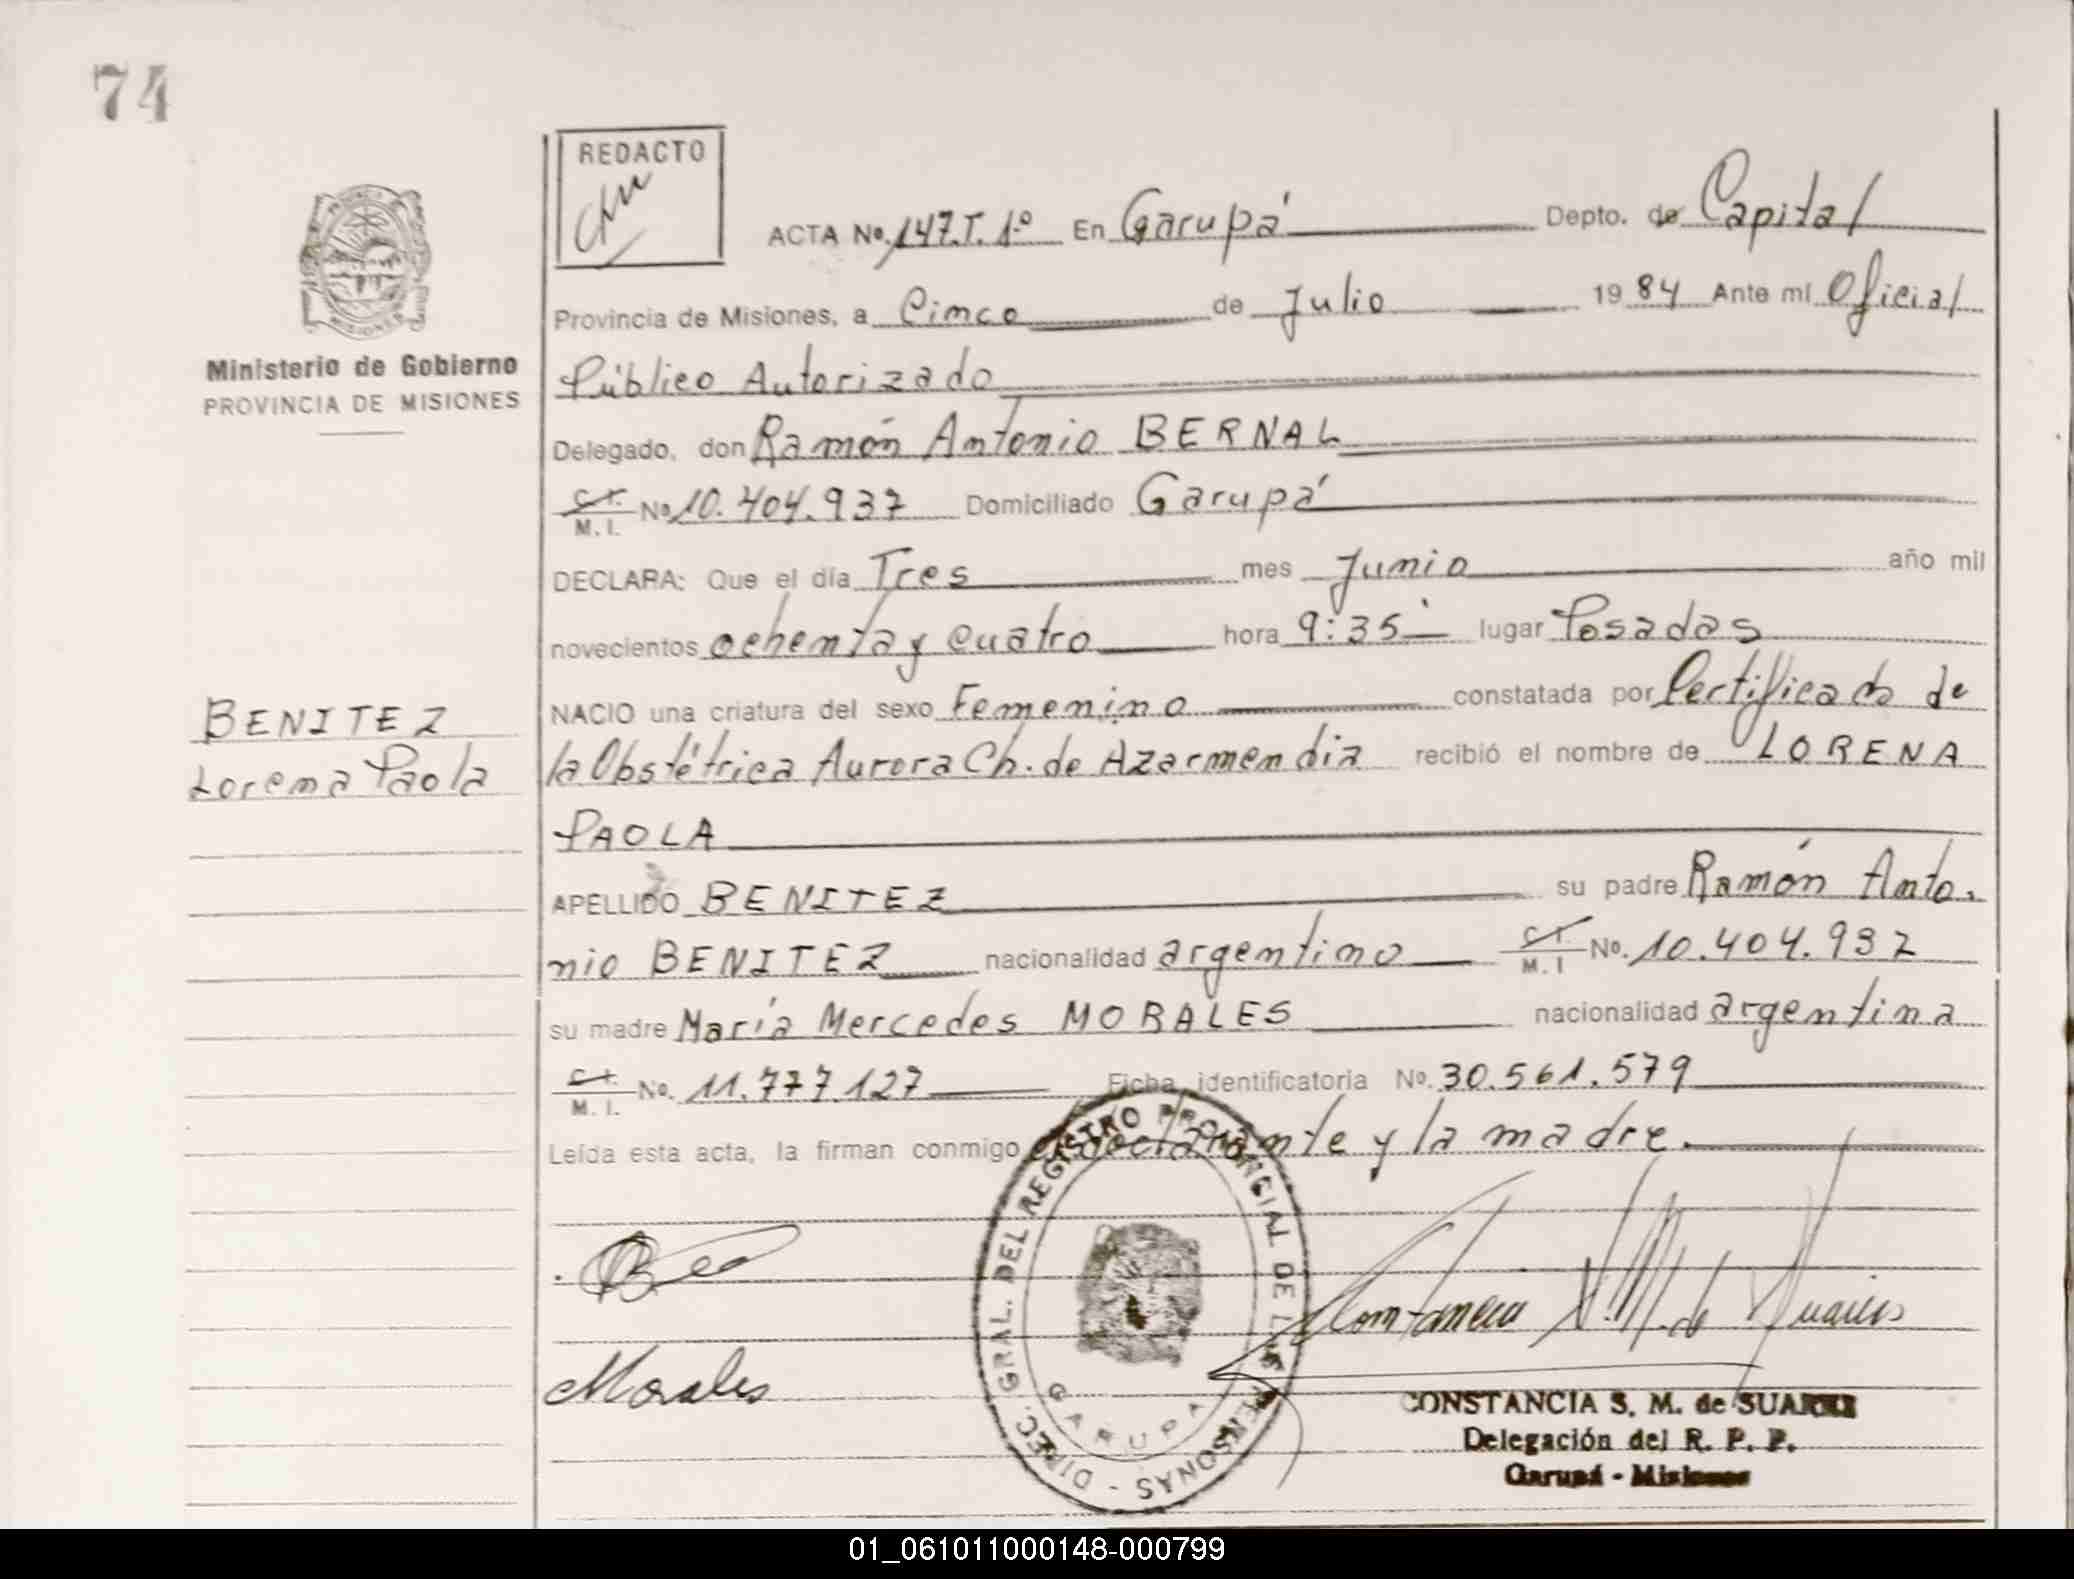 74
REDACTO
PROVINCIA DE
MISIONES
ACTA Nº. 147.T. 1º En Garupá Depto. de Capital
Provincia de Misiones, a Cinco de Julio 19 84 Ante mi Oficial
Ministerio de Gobierno
PROVINCIA DE MISIONES
Público Autorizado
Delegado, don Ramón Antonio BERNAL
C. I. M. I. Nº 10.404.937 Domiciliado Garupá
DECLARA: Que el día Tres mes Junio año mil
novecientos ochenta y cuatro hora 9:35 lugar Posadas
NACIO una criatura del sexo Femenino constatada por Certificado de
BENITEZ
Lorena Paola
la Obstétrica Aurora Ch. de Azarmendia recibió el nombre de LORENA
PAOLA
APELLIDO BENITEZ su padre Ramón Anto.
nio BENITEZ nacionalidad argentino C. I. M. I Nº. 10.404.937
su madre María Mercedes MORALES nacionalidad argentina
C. I. M. I. Nº. 11.777.127 Ficha identificatoria Nº. 30.561.579
Leída esta acta, la firman conmigo el declarante y la madre.
DIREC. GRAL. DEL REGISTRO PROVINCIAL DE LAS PERSONAS -
GARUPA
Morales
Constancia S. M. de Suarez
CONSTANCIA S. M. de SUAREZ
Delegación del R. P. P.
Garupá - Misiones
01_061011000148-000799